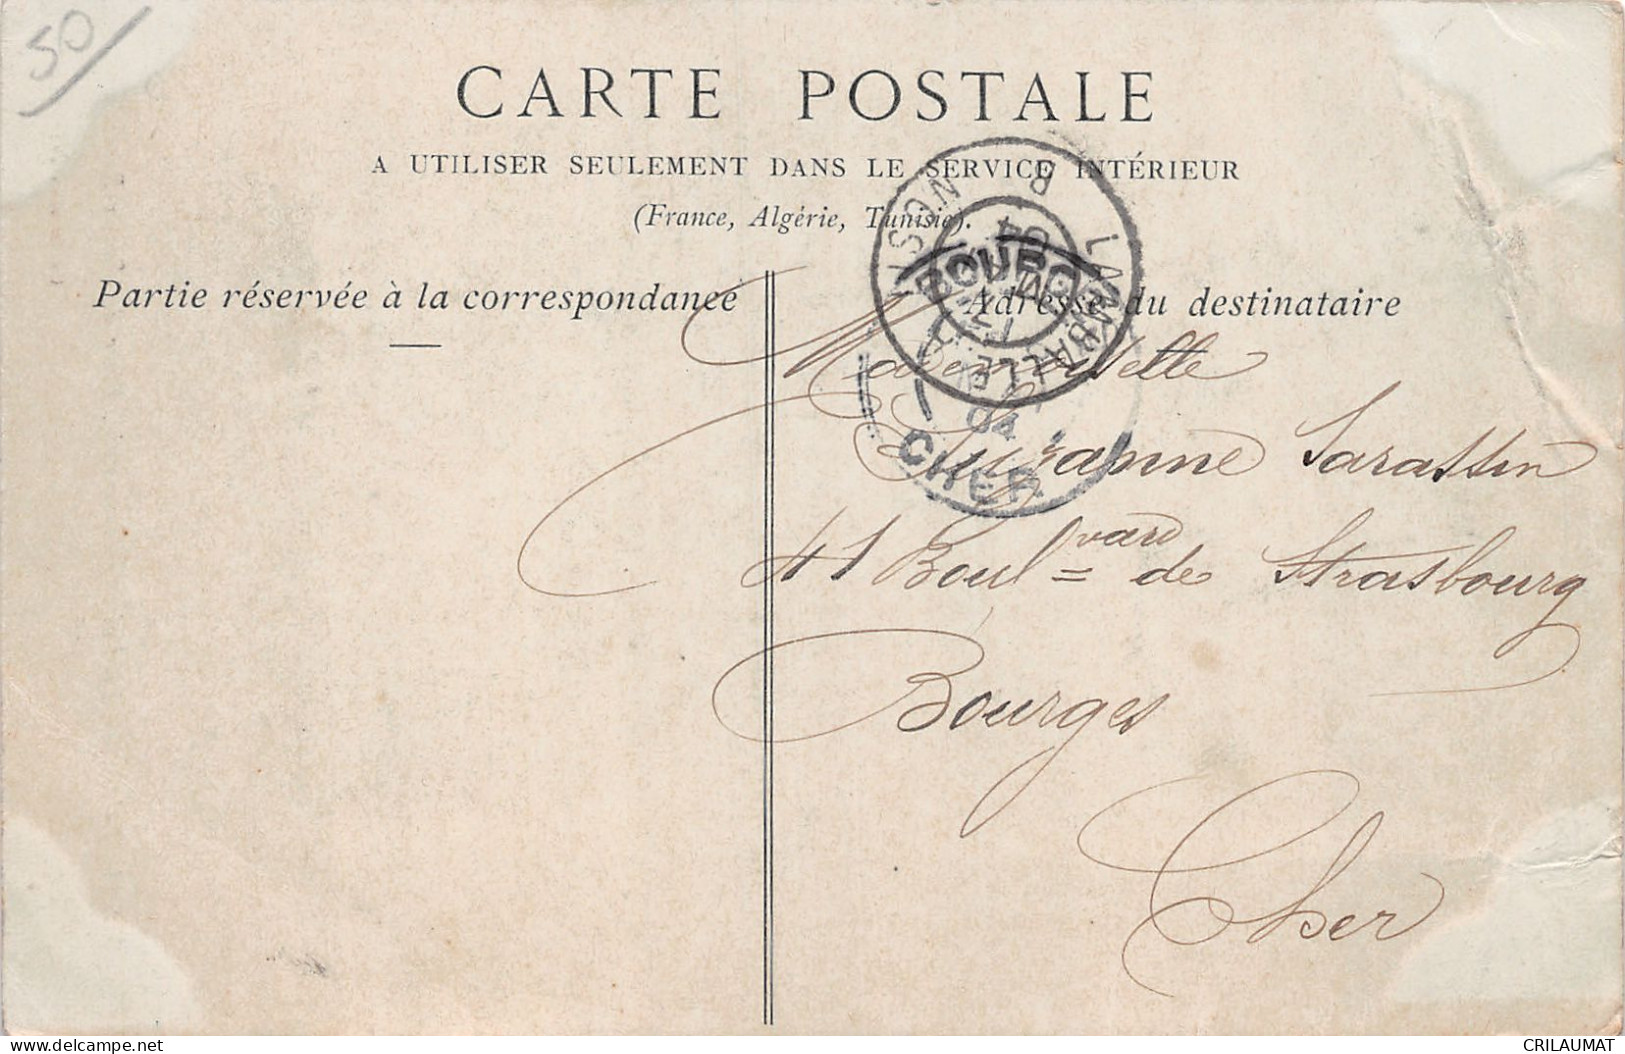 50
CARTE POSTALE
A UTILISER SEULEMENT DANS LE SERVICE INTÉRIEUR
(France, Algérie, Tunisie).
Partie réservée à la correspondance
Adresse du destinataire
LAMBALLE
04
CHER
Mademoiselle
Suzanne Sarassin
41 Boulvard de Strasbourg
Bourges
Cher
delcampe.net
CRILAUMAT